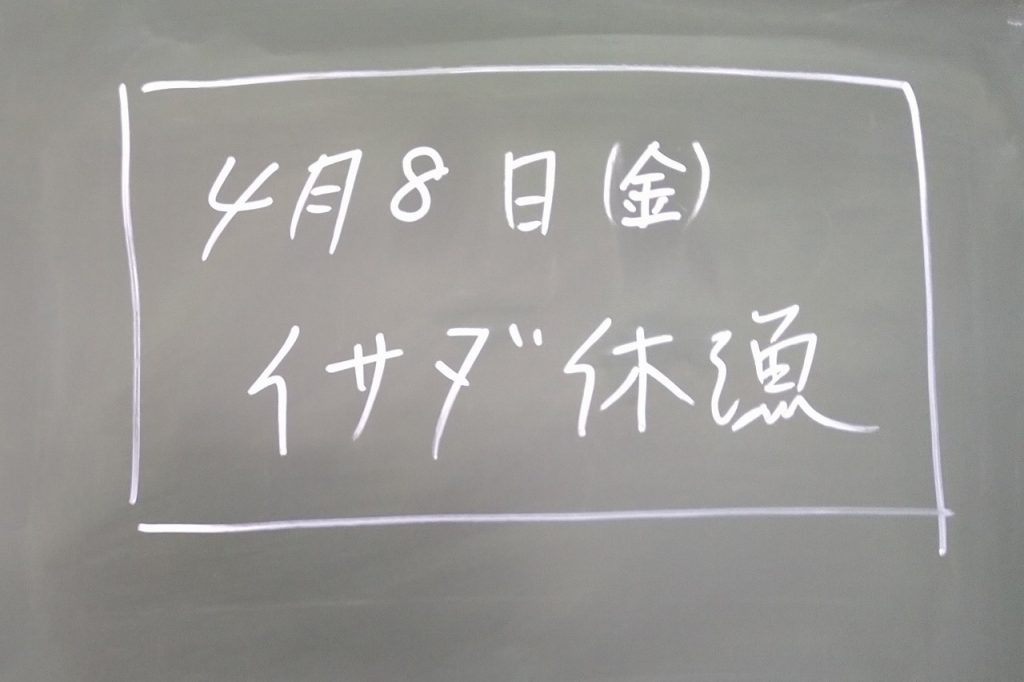 4月8日(金)
イサダ休漁